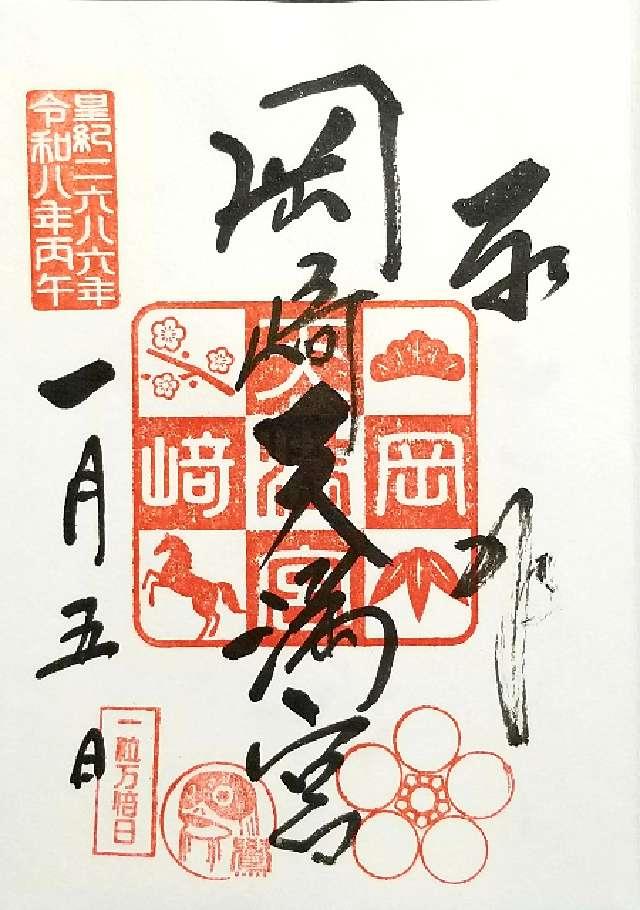 奉拝
岡崎天満宮
岡
天満宮
崎
皇紀二六八六年
令和八年丙午
一月五日
一粒万倍日
鷽